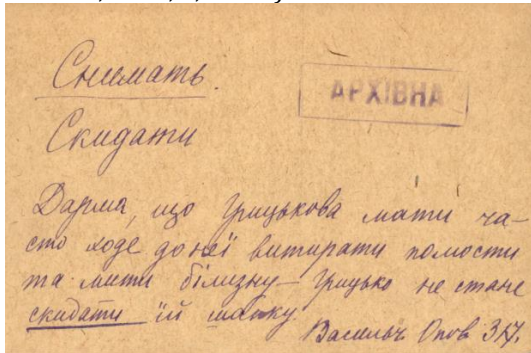 Снимать.
АРХІВНА
Скидати
Дарма, що Грицькова мати ча-
сто ходе до неї витирати помости
та мити білизну – Грицько не стане
скидати їй шапку.
Васильч Опов